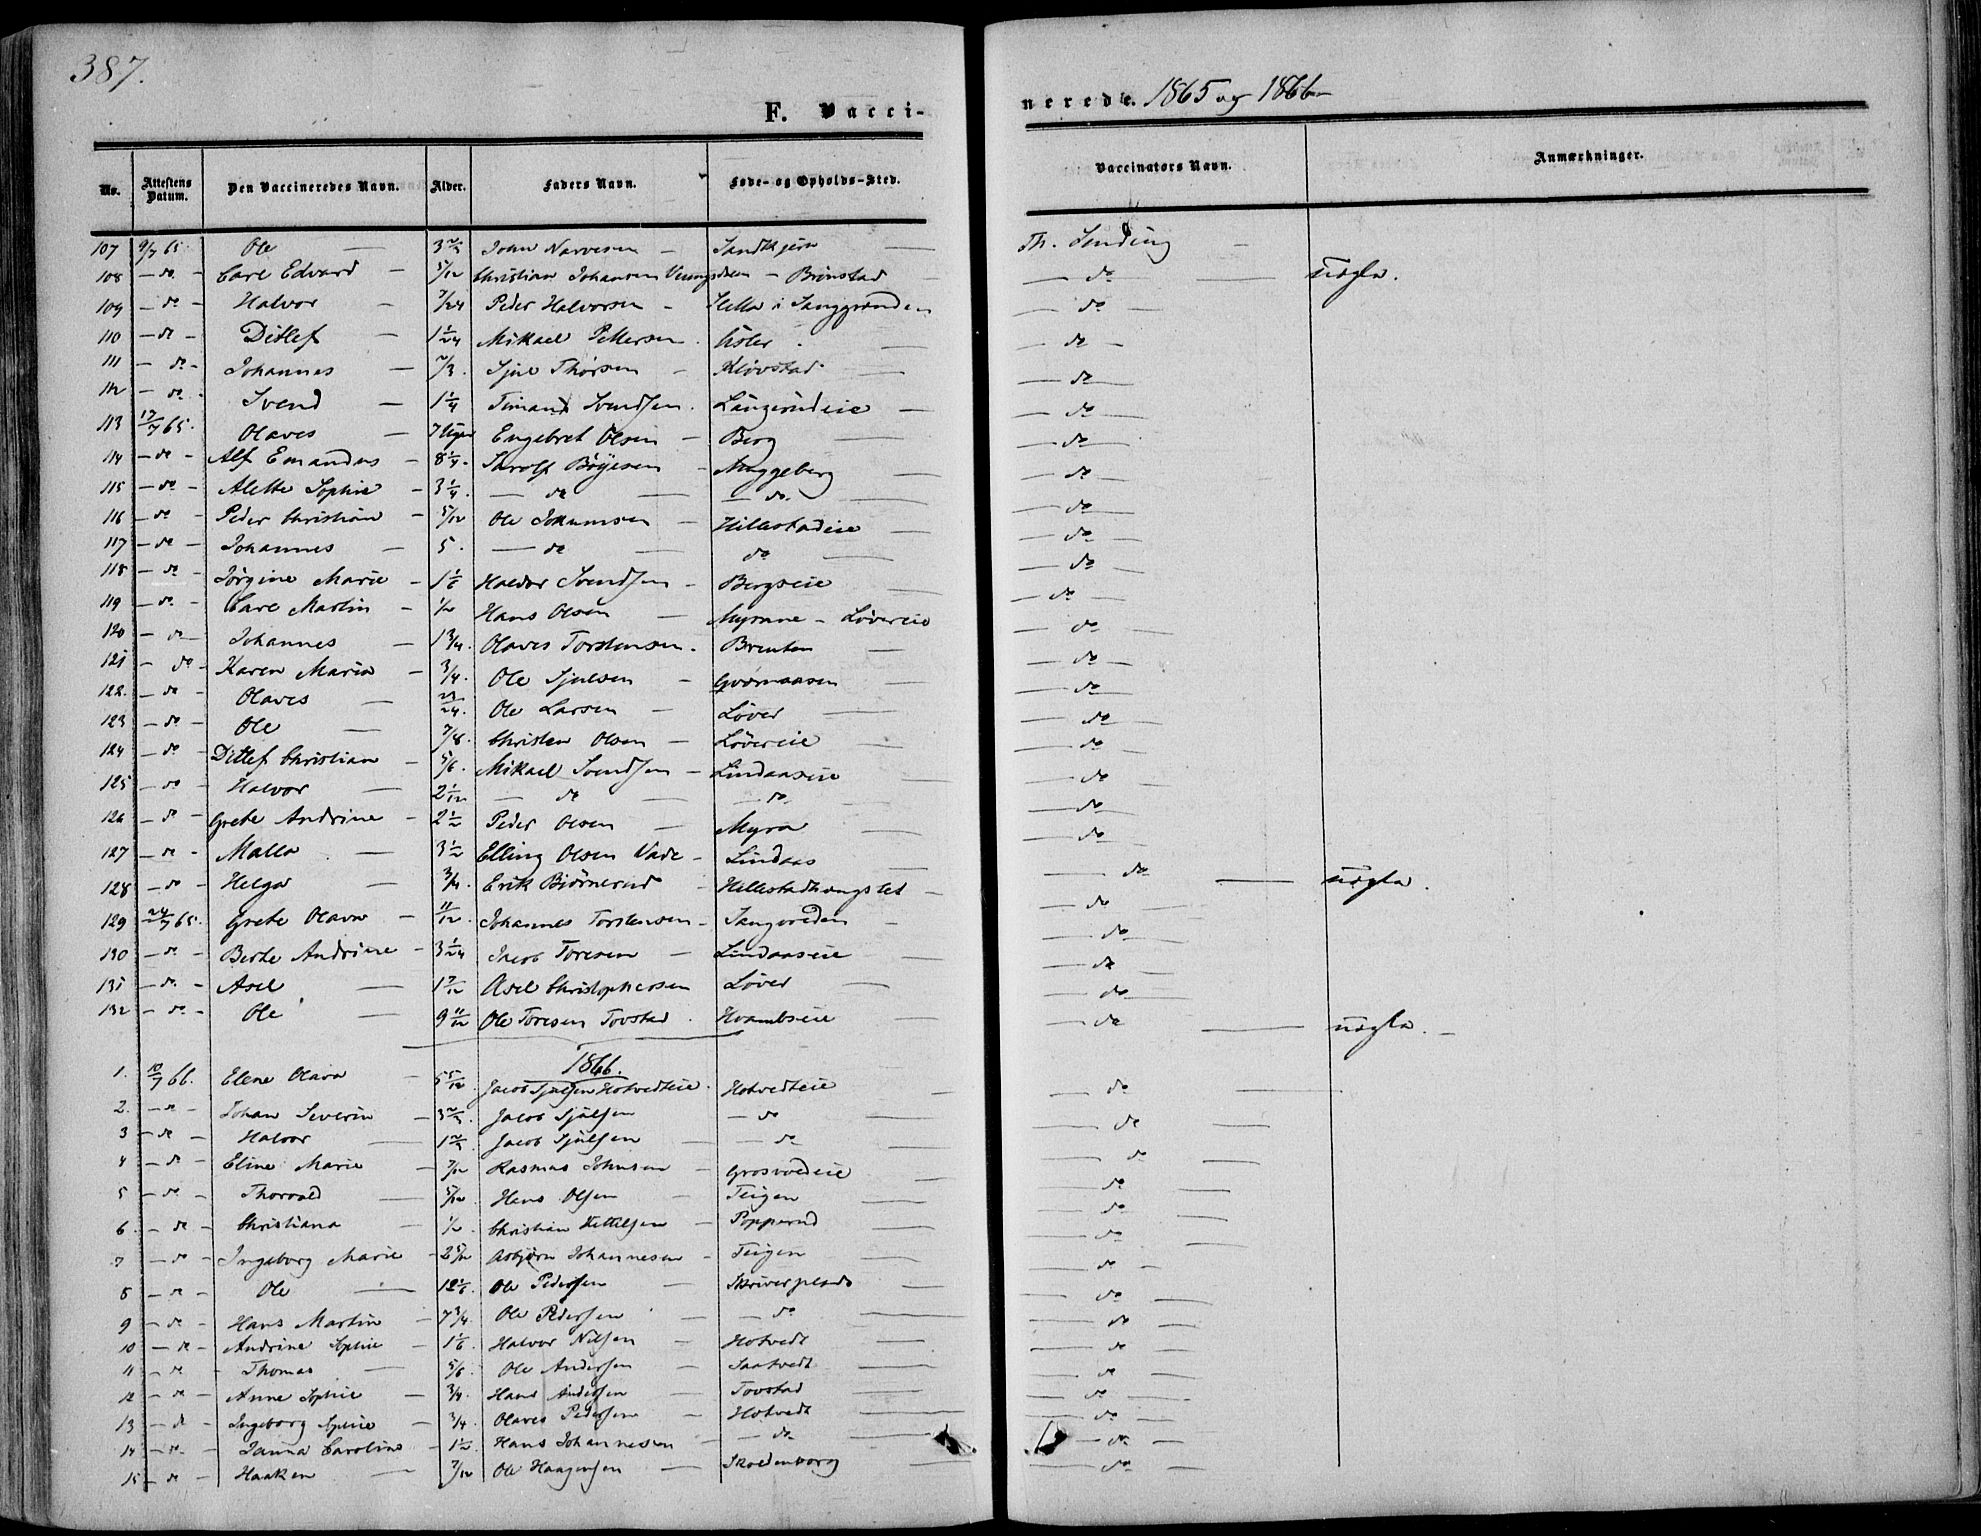 387.
F. Vacci-
nerede. 1865 og 1866
No. Attestens Datum. Den Vaccineredes Navn. Alder. Faders Navn. Føde- og Opholds-Sted. Vaccinators Navn. Anmærkninger.
107 9/7 65. Ole — 3 2/3 John Narvesen — Sandkjern — Th. Sending —
108 — do — Carl Edvard — 5/12 Christian Johansen — Brønstad — do — uægte.
109 — do — Halvor — 7/24 Peder Halvorsen — i — do —
110 — do — Ditlef — 1 1/24 Mikael Pettersen. — do —
111 — do — Johannes — 2/3. Sjul Thorsen — Kløvstad — do —
112 — do — Svend — 1 1/4 Svendsen. Langerudeie — do —
113 17/7 65. Olaves — 7 Uger Engebret Olsen — Berg — do —
114 — do — Alf Emandus — 8 1/4. Bøyesen — Muggeberg — do —
115 — do — Alette Sophie — 3 1/4. — do — — do. — do —
116 — do — Peder Christian — 5/12 Ole Johannsen — Hillestadeie — do —
117 — do — Johannes — 5. — do — do — do —
118 — do — Jørgine Marie — 1 1/6 Haldor Svendsen — Bergseie — do —
119 — do — Carl Martin — 1/2 Hans Olsen — Myrane - Løvereie — do —
120 — do — Johannes — 1 3/4. Olaves Torstensen. Brenten — do —
121 — do — Karen Maria — 3/4. Ole Sjulsen — — do —
122. — do — Olaves — 23/24. Ole Larsen — Løver — do —
123 — do — Ole — 7/8. Christen Olsen — Løvereie — do —
124 — do — Ditlef Christian — 5/6. Mikael Svendsen — Lindaaseie — do —
125 — do — Halvor — 2 1/12 — do — — do. — do —
126 — do — Grete Andrine — 2 1/2 Peder Olsen — Myra — do —
127 — do — Malla — 3 1/2 Elling Olsen — Lindaas — do —
128 — do — Helga — 3/4. Erik Biørnerud — — do — uægte.
129 24/7 65. Grete Olava — 11/12 Johannes Torstensen — — do —
130 — do — Berte Andrine — 3 1/24 Jacob Toresen — Lindaaseie — do —
131 — do — Axel — 1 7/12 Axel Christophersen Løver — do —
132 — do — Ole — 9 11/12 Ole Toresen Tovstad. Hvambseie — do — uægte. —
1866.
1. 10/7 66. Elene Olava — 5 5/12 Jacob Sjulsen Hotvedteie. Hotvedteie — do —
2. — do — Johan Severin — 3 2/3. Jacob Sjulsen — do — do —
3 — do — Halvor — 1 2/3. Jacob Sjulsen — — do — do —
4 — do — Eline Marie — 7/12 Rasmus Johnsen — Grosvoldeie — do —
5 — do — Thorvald — 5/12. Hans Olsen — Teigen — do —
6. — do — Christiana — 1/2 Christian Kettelsen — Popperud — do —
7 — do — Ingeborg Marie — 2 5/12 Asbjørn Johannesen — Teigen — do —
8 — do — Ole — 12 1/6. Ole Pedersen — Skriverplads — do —
9 — do — Hans Martin — 7 3/4. Ole Pedersen — — do — do —
10 — do — Andrine Sophie — 1 1/6 Halvor Nilsen — Hotvedt — do —
11 — do — Thomas — 5/6. Ole Andersen — Saatvedt — do —
12 — do — Anne Sophie — 3/4. Hans Andersen — Tovstad — do —
13 — do — Ingeborg Sophie — 3/4. Olaves Pedersen — Hotvedt — do —
14 — do — Janna Caroline — 1 1/2. Hans Johannesen — — do — do —
15 — do — Haaken — 7/12 Ole Haagensen — Skoldenborg — do —